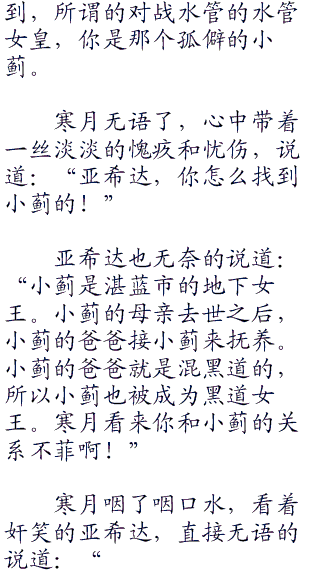 到，所谓的对战水管的水管
女皇，你是那个孤僻的小
蓟。
寒月无语了，心中带着
一丝淡淡的愧疚和忧伤，说
道：“亚希达，你怎么找到
小蓟的！”
亚希达也无奈的说道：
“小蓟是湛蓝市的地下女
王。小蓟的母亲去世之后，
小蓟的爸爸接小蓟来抚养。
小蓟的爸爸就是混黑道的，
所以小蓟也被成为黑道女
王。寒月看来你和小蓟的关
系不菲啊！”
寒月咽了咽口水，看着
奸笑的亚希达，直接无语的
说道：“